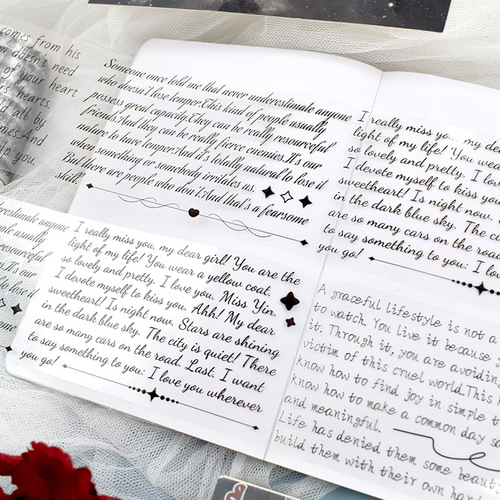 comes from his
m doesn't need
of your heart
rs hearts.
d all by
mes.And
in you.
Someone once told me that never underestimate anyone
who doesn't lose temper.This kind of people usually
possess great capacity.They can be really resourceful
friends.And they can be really fierce enemies.It's our
nature to have temper.And it's totally natural to lose it
when something or somebody irritates us.
But there are people who don't.And that's a fearsome
skill!
I really miss you, my dear
light of my life! You wear
so lovely and pretty. I love
I devote myself to kiss you
sweetheart! Is night now.
in the dark blue sky. The c
are so many cars on the road
to say something to you: I lo
you go!
anyone
usually
resourceful
It's our
lose it
fearsome
I really miss you, my dear girl! You are the
light of my life! You wear a yellow coat,
so lovely and pretty. I love you, Miss Yin.
I devote myself to kiss you. Ahh! My dear
sweetheart! Is night now. Stars are shining
in the dark blue sky. The city is quiet! There
are so many cars on the road. Last, I want
to say something to you: I love you wherever
you go!
A graceful lifestyle is not a
to watch. You live it because
it. Through it, you are avoidin
victim of this cruel world.This
know how to find joy in simple t
know how to make a common day s
and meaningful.
Life has denied them some beaut
build them with their own han